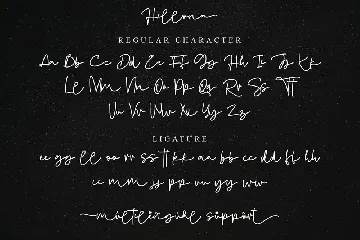 Hillona
REGULAR CHARACTER
Aa Bb Cc Dd Ee Ff Gg Hh Ii Jj Kk
Ll Mm Nn Oo Pp Qq Rr Ss Tt
Uu Vv Ww Xx Yy Zz
LIGATURE
ee gg ll oo rr ss tt kk aa bb cc dd ff hh
cc mm jj pp uu yy ww
multilingual support